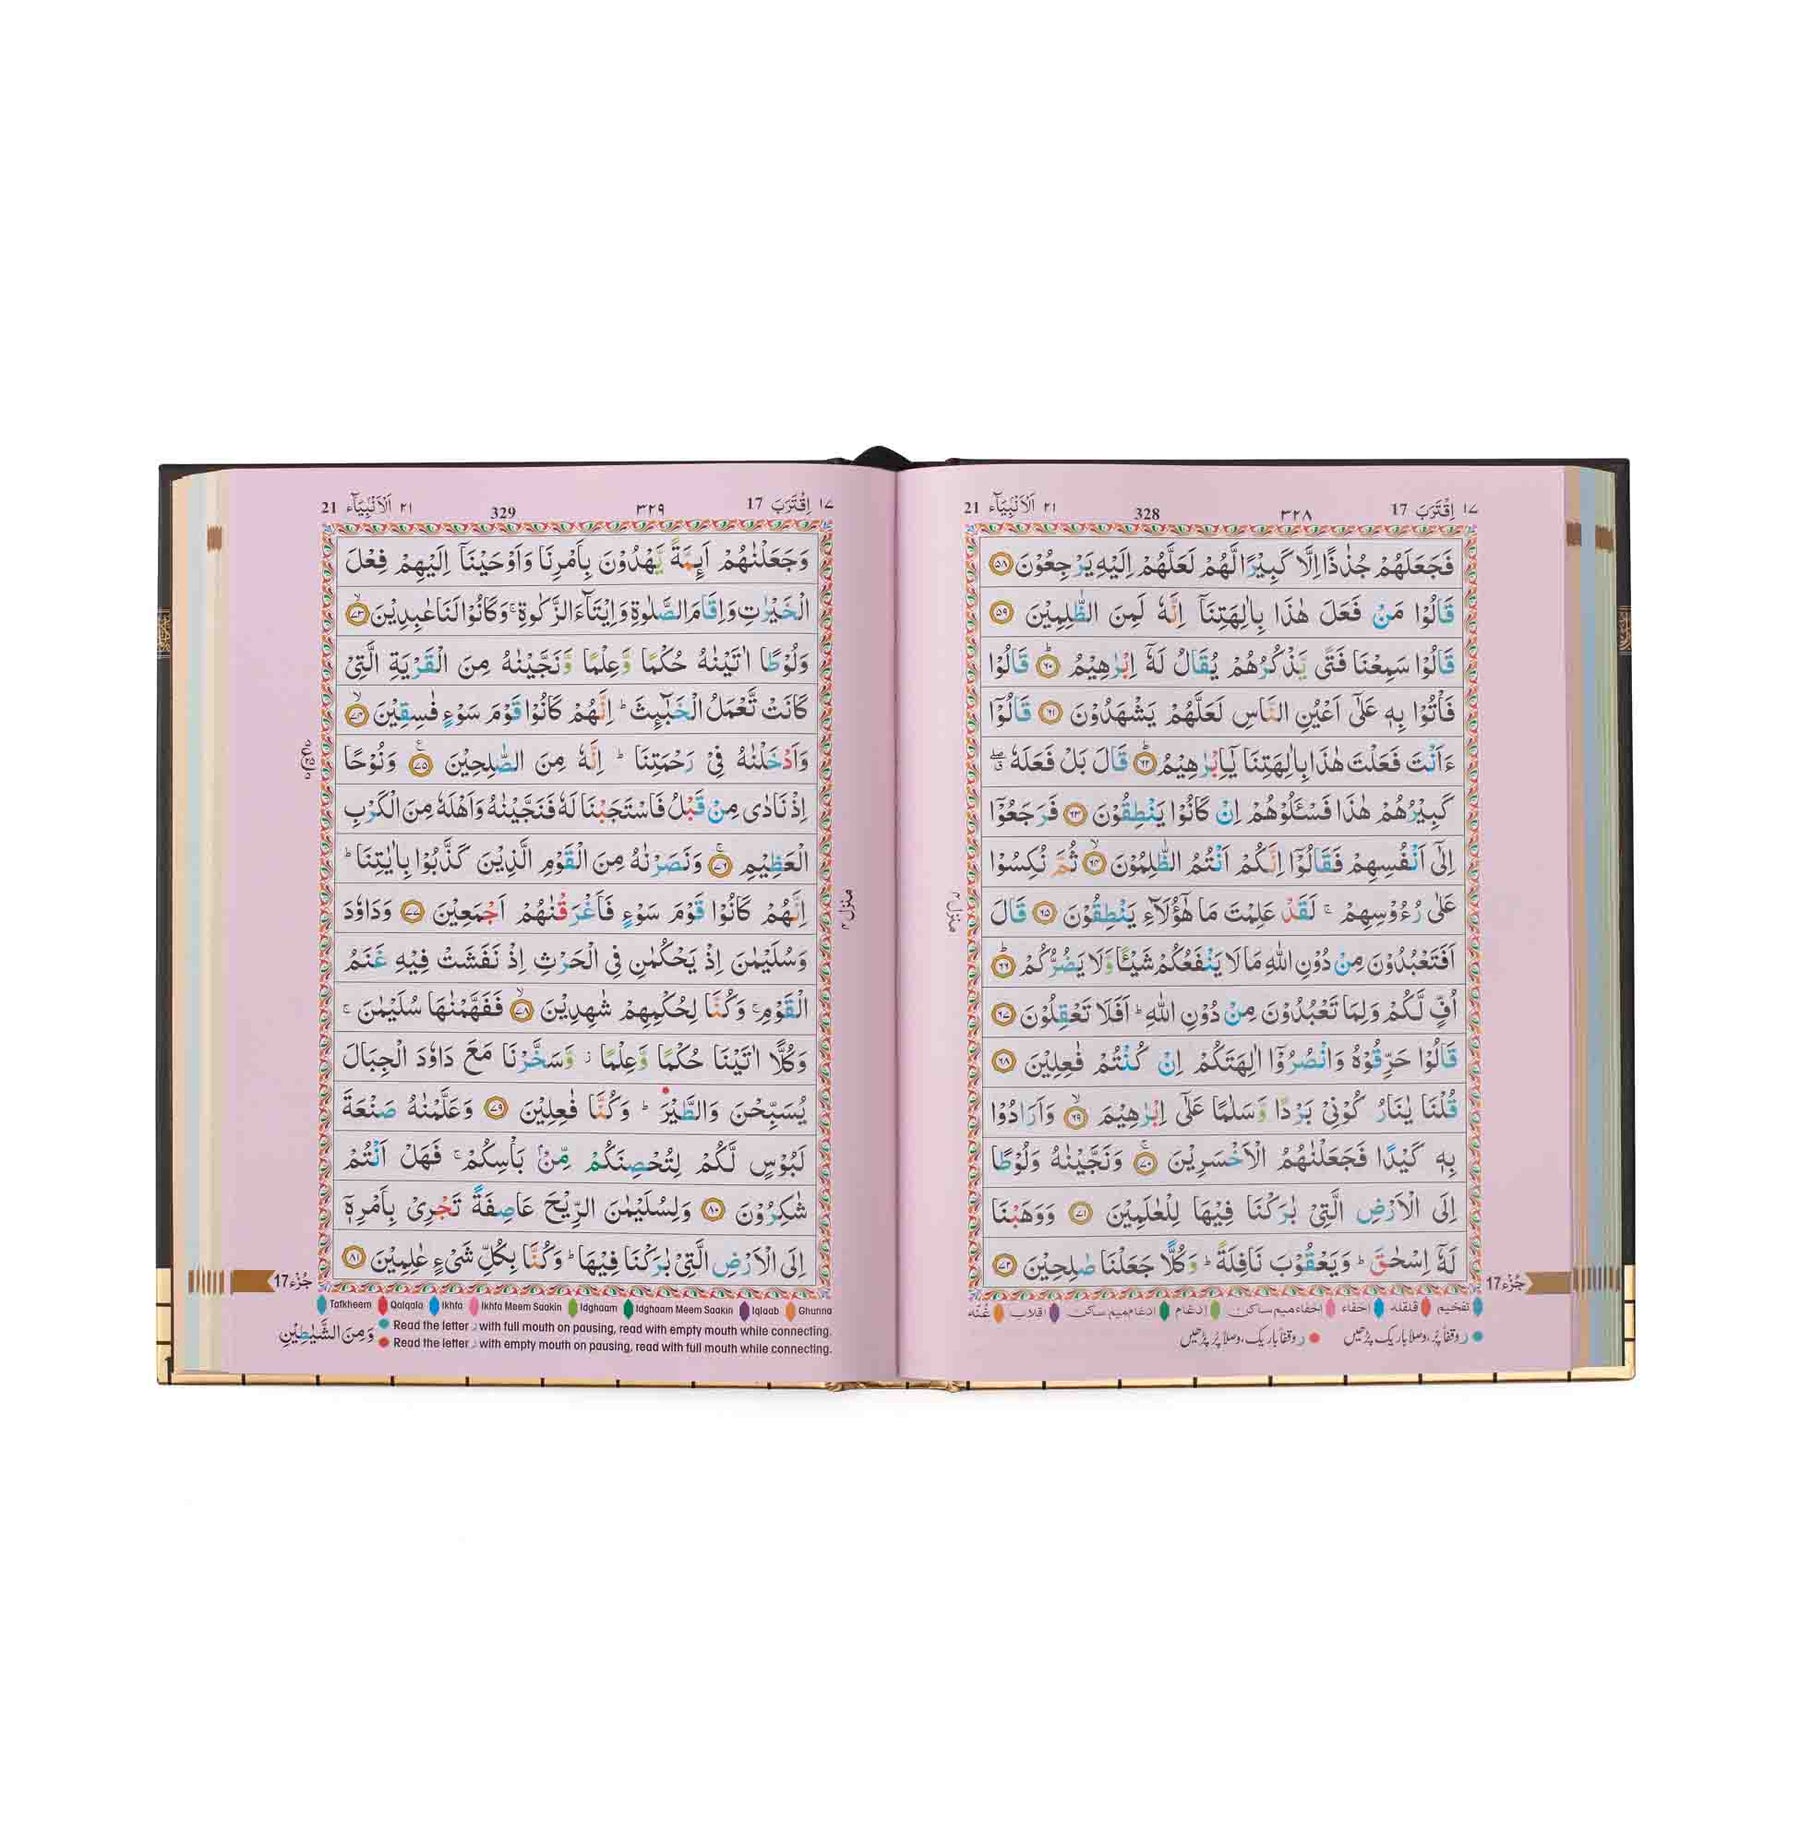 ١٧ اِقْتَرَبَ 17
٣٢٨
328
٢١ اَلْاَنْبِيَآء 21
فَجَعَلَهُمْ جُذٰذًا اِلَّا كَبِيْرًا لَّهُمْ لَعَلَّهُمْ اِلَيْهِ يَرْجِعُوْنَ ٥٨
قَالُوْا مَنْ فَعَلَ هٰذَا بِاٰلِهَتِنَاۤ اِنَّهٗ لَمِنَ الظّٰلِمِيْنَ ٥٩
قَالُوْا سَمِعْنَا فَتًى يَّذْكُرُهُمْ يُقَالُ لَهٗۤ اِبْرٰهِيْمُ ؕ ٦٠ قَالُوْا
فَاْتُوْا بِهٖ عَلٰۤى اَعْيُنِ النَّاسِ لَعَلَّهُمْ يَشْهَدُوْنَ ٦١ قَالُوْۤا
ءَاَنْتَ فَعَلْتَ هٰذَا بِاٰلِهَتِنَا يٰۤاِبْرٰهِيْمُ ؕ ٦٢ قَالَ بَلْ فَعَلَهٗ ۖۗ
كَبِيْرُهُمْ هٰذَا فَسْـَٔلُوْهُمْ اِنْ كَانُوْا يَنْطِقُوْنَ ٦٣ فَرَجَعُوْۤا
اِلٰۤى اَنْفُسِهِمْ فَقَالُوْۤا اِنَّكُمْ اَنْتُمُ الظّٰلِمُوْنَ ۙ ٦٤ ثُمَّ نُكِسُوْا
عَلٰى رُءُوْسِهِمْ ۚ لَقَدْ عَلِمْتَ مَا هٰۤؤُلَآءِ يَنْطِقُوْنَ ٦٥ قَالَ
اَفَتَعْبُدُوْنَ مِنْ دُوْنِ اللّٰهِ مَا لَا يَنْفَعُكُمْ شَيْـًٔا وَّلَا يَضُرُّكُمْ ؕ ٦٦
اُفٍّ لَّكُمْ وَلِمَا تَعْبُدُوْنَ مِنْ دُوْنِ اللّٰهِ ؕ اَفَلَا تَعْقِلُوْنَ ٦٧
قَالُوْا حَرِّقُوْهُ وَانْصُرُوْۤا اٰلِهَتَكُمْ اِنْ كُنْتُمْ فٰعِلِيْنَ ٦٨
قُلْنَا يٰنَارُ كُوْنِيْ بَرْدًا وَّسَلٰمًا عَلٰۤى اِبْرٰهِيْمَ ۙ ٦٩ وَاَرَادُوْا
بِهٖ كَيْدًا فَجَعَلْنٰهُمُ الْاَخْسَرِيْنَ ۚ ٧٠ وَنَجَّيْنٰهُ وَلُوْطًا
اِلَى الْاَرْضِ الَّتِيْ بٰرَكْنَا فِيْهَا لِلْعٰلَمِيْنَ ٧١ وَوَهَبْنَا
لَهٗۤ اِسْحٰقَ ؕ وَيَعْقُوْبَ نَافِلَةً ؕ وَكُلًّا جَعَلْنَا صٰلِحِيْنَ ٧٢
منزل ٤
جُزْء 17
تفخیم قلقلہ اخفاء اخفاء میم ساکن ادغام ادغام میم ساکن اقلاب غُنّہ
ر وقفاً پُر، وصلا باریک پڑھیں ر وقفاً باریک، وصلا پُر پڑھیں
١٧ اِقْتَرَبَ 17
٣٢٩
329
٢١ اَلْاَنْبِيَآء 21
وَجَعَلْنٰهُمْ اَىِٕمَّةً يَّهْدُوْنَ بِاَمْرِنَا وَاَوْحَيْنَاۤ اِلَيْهِمْ فِعْلَ
الْخَيْرٰتِ وَاِقَامَ الصَّلٰوةِ وَاِيْتَآءَ الزَّكٰوةِ ۚ وَكَانُوْا لَنَا عٰبِدِيْنَ ۙ ٧٣
وَلُوْطًا اٰتَيْنٰهُ حُكْمًا وَّعِلْمًا وَّنَجَّيْنٰهُ مِنَ الْقَرْيَةِ الَّتِيْ
كَانَتْ تَّعْمَلُ الْخَبٰٓىِٕثَ ؕ اِنَّهُمْ كَانُوْا قَوْمَ سَوْءٍ فٰسِقِيْنَ ۙ ٧٤
وَاَدْخَلْنٰهُ فِيْ رَحْمَتِنَا ؕ اِنَّهٗ مِنَ الصّٰلِحِيْنَ ۧ ٧٥ وَنُوْحًا
اِذْ نَادٰى مِنْ قَبْلُ فَاسْتَجَبْنَا لَهٗ فَنَجَّيْنٰهُ وَاَهْلَهٗ مِنَ الْكَرْبِ
الْعَظِيْمِ ۚ ٧٦ وَنَصَرْنٰهُ مِنَ الْقَوْمِ الَّذِيْنَ كَذَّبُوْا بِاٰيٰتِنَا ؕ
اِنَّهُمْ كَانُوْا قَوْمَ سَوْءٍ فَاَغْرَقْنٰهُمْ اَجْمَعِيْنَ ٧٧ وَدَاوٗدَ
وَسُلَيْمٰنَ اِذْ يَحْكُمٰنِ فِي الْحَرْثِ اِذْ نَفَشَتْ فِيْهِ غَنَمُ
الْقَوْمِ ۚ وَكُنَّا لِحُكْمِهِمْ شٰهِدِيْنَ ۙ ٧٨ فَفَهَّمْنٰهَا سُلَيْمٰنَ ۚ
وَكُلًّا اٰتَيْنَا حُكْمًا وَّعِلْمًا ؗ وَّسَخَّرْنَا مَعَ دَاوٗدَ الْجِبَالَ
يُسَبِّحْنَ وَالطَّيْرَ ؕ وَكُنَّا فٰعِلِيْنَ ٧٩ وَعَلَّمْنٰهُ صَنْعَةَ
لَبُوْسٍ لَّكُمْ لِتُحْصِنَكُمْ مِّنْۢ بَاْسِكُمْ ۚ فَهَلْ اَنْتُمْ
شٰكِرُوْنَ ٨٠ وَلِسُلَيْمٰنَ الرِّيْحَ عَاصِفَةً تَجْرِيْ بِاَمْرِهٖۤ
اِلَى الْاَرْضِ الَّتِيْ بٰرَكْنَا فِيْهَا ؕ وَكُنَّا بِكُلِّ شَيْءٍ عٰلِمِيْنَ ٨١
منزل ٤
جُزْء 17
Tafkheem Qalqala Ikhfa Ikhfa Meem Saakin Idghaam Idghaam Meem Saakin Iqlaab Ghunna
Read the letter ر with full mouth on pausing, read with empty mouth while connecting.
Read the letter ر with empty mouth on pausing, read with full mouth while connecting.
وَمِنَ الشَّيٰطِيْنِ